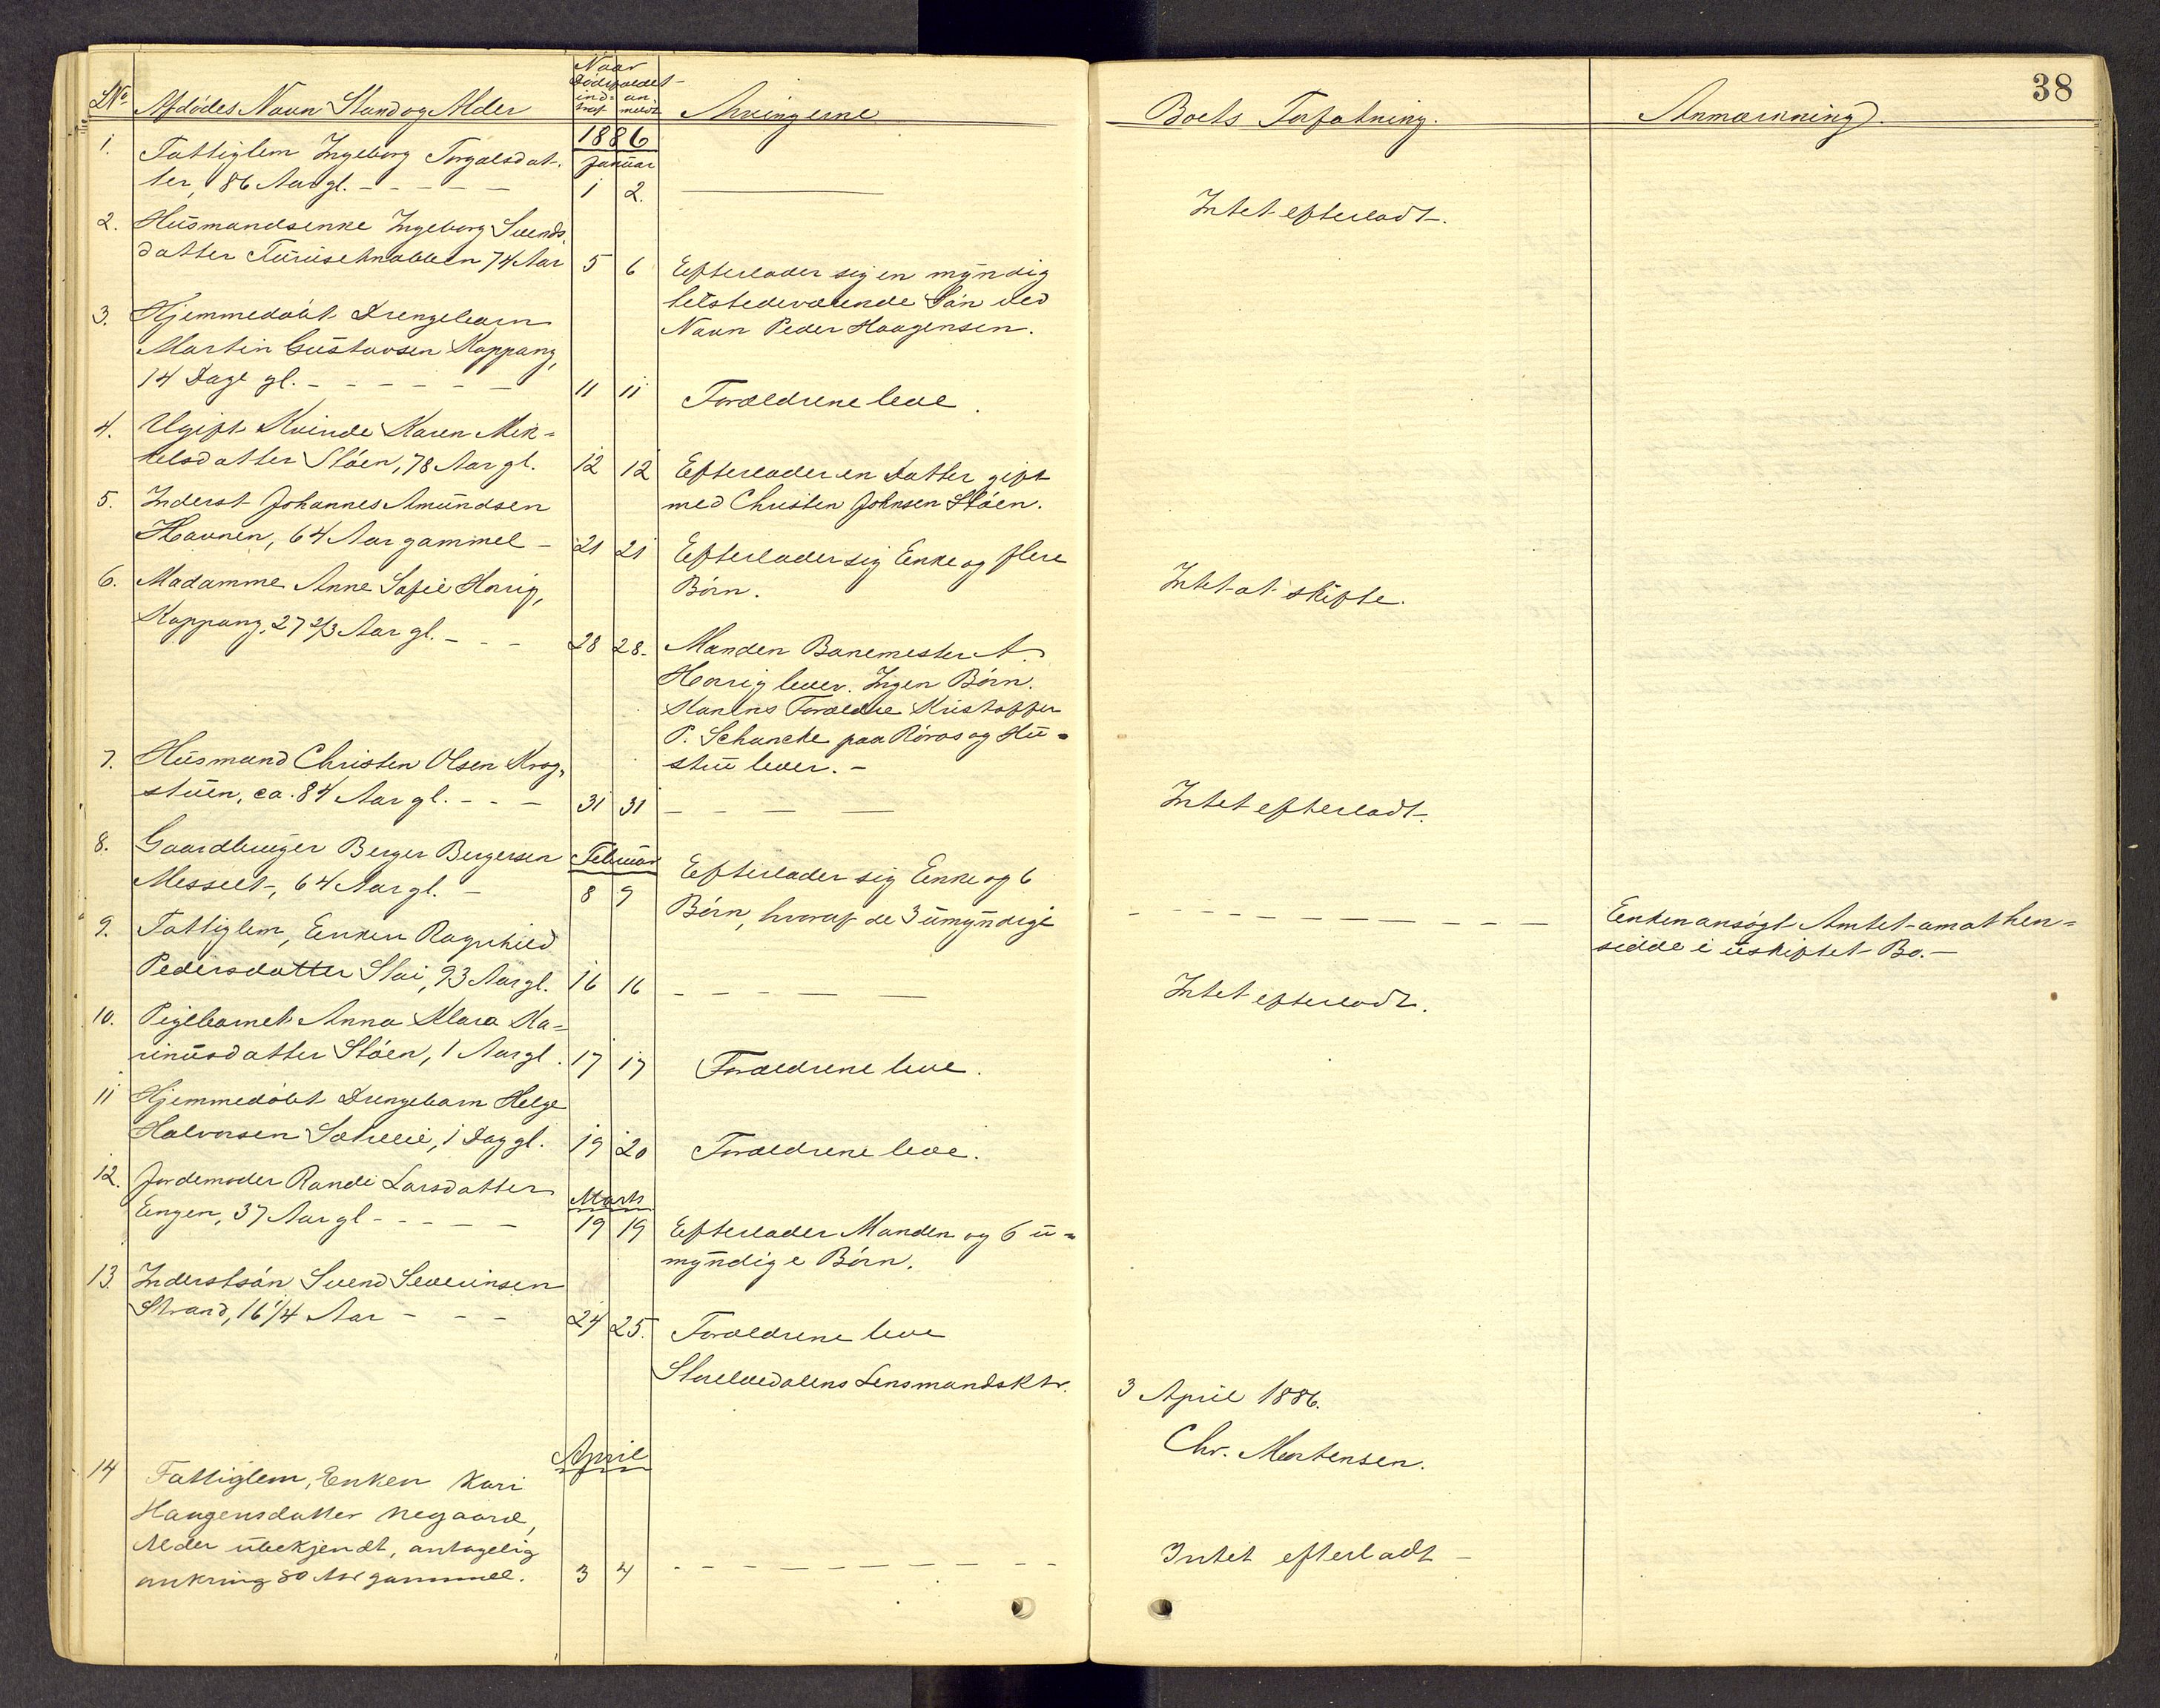 38
LNo
Afdødes Navn Stand og Alder
Naar
Dödsfaldet
ind= an=
traf meldt
Arvingerne
Boets Forfatning.
Anmærkning.
1886
Januar
1. Fattiglem Ingeborg Torgalsdat-
ter, 86 Aar gl. - - - - - 1 2.
Intet efterladt.
2. Husmandsenke Ingeborg Svends-
datter 74 Aar 5 6 Efterlader sig en myndig
tilstedeværende Sön ved
Navn Peder Haagensen.
3. Hjemmedöbt Drengebarn
Martin Gustavsen Koppang,
14 Dage gl. - - - - - - 11 11 Forældrene leve.
4. Ugift Kvinde Karen Mik=
kelsdatter Stöen, 78 Aar gl. 12 12 Efterlader en Datter gift
med Christen Johnsen Stöen.
5. Inderst Johannes Amundsen
Havnen, 64 Aar gammel - 21 21 Efterlader sig Enke og flere
Börn.
Intet at skifte.
6. Madamme Anne Sofie Horrig,
Koppang, 27 2/3 Aar gl. - - - 28 28. Manden Banemester A.
Horrig lever. Ingen Börn.
Konens Forældre Kristoffer
P. Schancke paa Röros og Hu=
stru lever. -
7. Husmand Christen Olsen Krog-
stuen, ca. 84 Aar gl. - - - 31 31 - - - -
Intet efterladt.
Februar
8. Gaardbruger Berger Bergersen
Messelt, 64 Aar gl. - 8 9 Efterlader sig Enke og 6
Börn, hvoraf de 3 umyndige
- - - - - - - - - - - Enken ansögt Amtet om at hen=
sidde i uskiftet Bo. -
9. Fattiglem, Enken Ragnhild
Pedersdatter Stai, 93 Aar gl. 16 16 - - - - -
Intet efterladt.
10. Pigebarnet Anna Klara Ma=
rinusdatter Stöen, 1 Aar gl. 17 17 Forældrene leve.
11 Hjemmedöbt Drengebarn Helge
Halvorsen Sætreeie, 1 Dag gl. 19 20 Forældrene leve.
Marts
12. Jordemoder Randi Larsdatter
Engen, 37 Aar gl - - - - - 19 19 Efterlader Manden og 6 u=
myndige Börn.
13. Inderstsön Svend Severinsen
Strand, 16 1/4 Aar - - - 24 25. Forældrene leve
Storelvedalens Lensmandsktr. 3 April 1886.
Chr. Mortensen.
April
14 Fattiglem, Enken Kari
Haagensdatter Negaard,
Alder ubekjendt, antagelig
omkring 80 Aar gammel. 3 4 - - - - - - - - -
Intet efterladt -